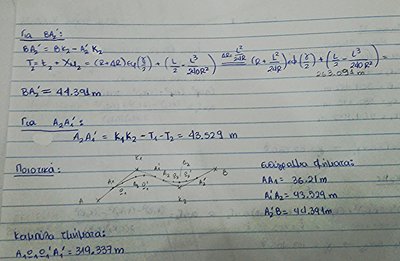 Για BA₂':
BA₂' = BK₂ - A₂'K₂
T₂ = t₂ + X_M₂ = (R+ΔR) εφ(γ/2) + (L/2 - L³/240R²) ΔR = L²/24R (R + L²/24R) εφ(γ/2) + (L/2 - L³/240R²) =
263.091 m
BA₂' = 44.391 m
Για A₂A₁':
A₂A₁' = K₁K₂ - T₁ - T₂ = 43.529 m
Ποιοτικά:
K₁
A
B
K₂
ευθύγραμμα τμήματα:
AA₁ = 36.21 m
A₁'A₂ = 43.529 m
A₂'B = 44.391 m
Καμπύλα τμήματα:
A₁Ω₁Ω₁'A₁' = 319.337 m